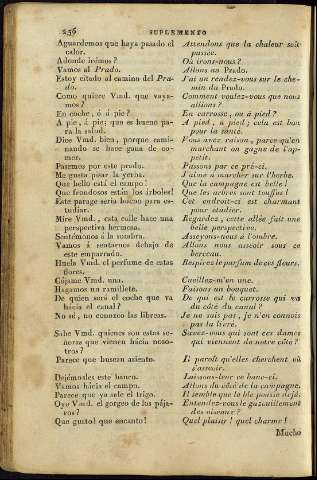 256 SUPLEMENTO
Aguardemos que haya pasado el
calor.
A donde irémos?
Vamos al Prado.
Estoy citado al camino del Pra-
do.
Como quiere Vmd. que vaya-
mos?
En coche, ó á pie?
A pie, á pie; que es bueno pa-
ra la salud.
Dice Vmd. bien, porque cami-
nando se hace gana de co-
mer.
Pasemos por este prado.
Me gusta pisar la yerba.
Que bello está el campo!
Que frondosos están los árboles!
Este parage seria bueno para es-
tudiar.
Mire Vmd., esta calle hace una
perspectiva hermosa.
Sentémonos á la sombra.
Vamos á sentarnos debajo de
este emparrado.
Huela Vmd. el perfume de estas
flores.
Cójame Vmd. una.
Hagamos un ramillete.
De quien será el coche que va
hácia el canal?
No sé, no conozco las libreas.
Sabe Vmd. quienes son estas se-
ñoras que vienen hácia noso-
tros?
Parece que buscan asiento.
Dejémosles este banco.
Vamos hácia el campo.
Parece que ya sale el trigo.
Oye Vmd. el gorgeo de los pája-
ros?
Que gusto! que encanto!
Attendons que la chaleur soit
passée.
Où irons-nous?
Allons au Prado.
J'ai un rendez-vous sur le che-
min du Prado.
Comment voulez-vous que nous
allions?
En carrosse, ou à pied?
A pied, à pied; cela est bon
pour la santé.
Vous avez raison, parce qu'en
marchant on gagne de l'ap-
pétit.
Passons par ce pré-ci.
J'aime à marcher sur l'herbe.
Que la campagne est belle!
Que les arbres sont touffus!
Cet endroit-ci est charmant
pour étudier.
Regardez, cette allée fait une
belle perspective.
Asseyons-nous à l'ombre.
Allons nous asseoir sous ce
berceau.
Respirez le parfum de ces fleurs.
Cueillez-m'en une.
Faisons un bouquet.
De qui est le carrosse qui va
du côté du canal?
Je ne sais pas, je n'en connois
pas la livrée.
Savez-vous qui sont ces dames
qui viennent de notre côté?
Il paroît qu'elles cherchent où
s'asseoir.
Laissons-leur ce banc-ci.
Allons du côté de la campagne.
Il semble que le blé pousse déjà.
Entendez-vous le gazouillement
des oiseaux?
Quel plaisir! quel charme!
Mucho